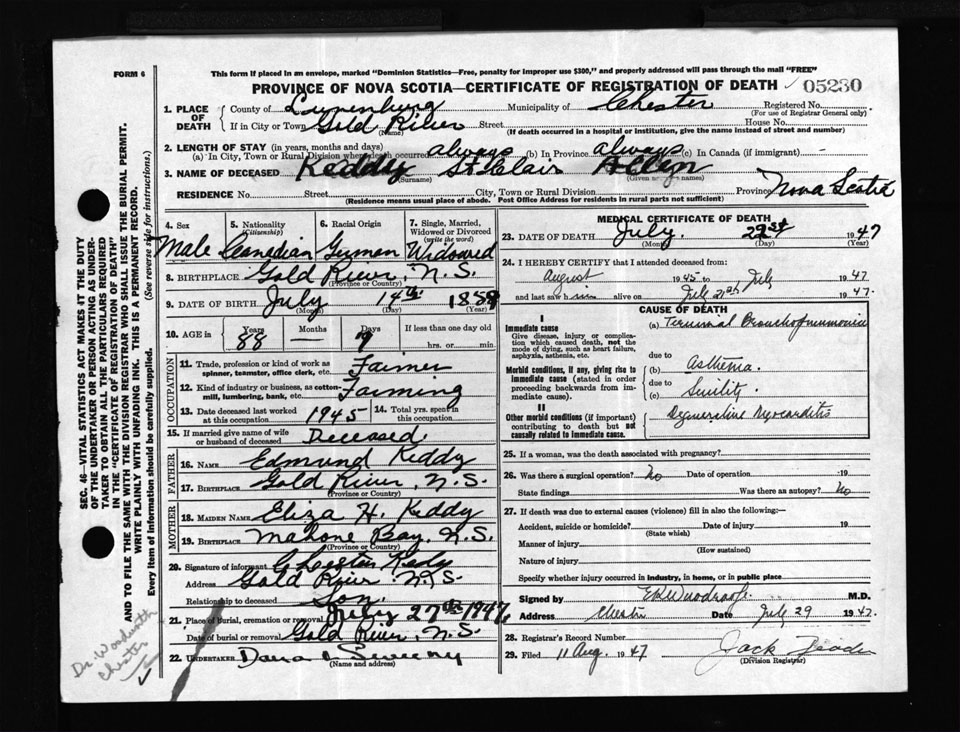 FORM 6
This form if placed in an envelope, marked "Dominion Statistics—Free, penalty for improper use $300," and properly addressed will pass through the mail "FREE"
PROVINCE OF NOVA SCOTIA—CERTIFICATE OF REGISTRATION OF DEATH
05230
1. PLACE OF DEATH
County of Lunenburg Municipality of Chester Registered No.
(For use of Registrar General only)
If in City or Town Gold River Street House No.
(Name) (If death occurred in a hospital or institution, give the name instead of street and number)
2. LENGTH OF STAY (in years, months and days)
(a) In City, Town or Rural Division where death occurred always (b) In Province Always (c) In Canada (if immigrant)
3. NAME OF DECEASED Keddy St Clair
(Surname) (Given names)
RESIDENCE No. Street City, Town or Rural Division Province Nova Scotia
(Residence means usual place of abode. Post Office Address for residents in rural parts not sufficient)
4. Sex 5. Nationality (Citizenship) 6. Racial Origin 7. Single, Married, Widowed or Divorced (write the word)
Male Canadian German Widowed
8. BIRTHPLACE Gold River, N.S.
(Province or Country)
9. DATE OF BIRTH July 14th 1859
(Month) (Day) (Year)
10. AGE in Years Months Days If less than one day old
88 — 9 hrs. or min.
OCCUPATION
11. Trade, profession or kind of work as spinner, teamster, office clerk, etc. Farmer
12. Kind of industry or business, as cotton-mill, lumbering, bank, etc. Farming
13. Date deceased last worked at this occupation 1945 14. Total yrs. spent in this occupation
15. If married give name of wife or husband of deceased Deceased.
FATHER
16. NAME Edmund Keddy
17. BIRTHPLACE Gold River, N.S.
(Province or Country)
MOTHER
18. MAIDEN NAME Eliza H. Keddy
19. BIRTHPLACE Mahone Bay, N.S.
(Province or Country)
20. Signature of informant Chester Kedy
Address Gold River N.S.
Relationship to deceased Son.
21. Place of burial, cremation or removal July 27th 1947
Date of burial or removal Gold River, N.S.
22. UNDERTAKER Dana Sweeny
(Name and address)
MEDICAL CERTIFICATE OF DEATH
23. DATE OF DEATH July. 1947
(Month) (Day) (Year)
24. I HEREBY CERTIFY that I attended deceased from:
August 1945 to July 1947
and last saw him alive on July 21st 1947.
CAUSE OF DEATH
I
Immediate cause
Give disease, injury or complication which caused death, not the mode of dying, such as heart failure, asphyxia, asthenia, etc.
(a) Terminal Bronchopneumonia
due to
Morbid conditions, if any, giving rise to immediate cause (stated in order proceeding backwards from immediate cause).
(b) Asthenia.
due to
(c) Senility
II
Other morbid conditions (if important) contributing to death but not causally related to immediate cause.
Degenerative Myocarditis
25. If a woman, was the death associated with pregnancy?
26. Was there a surgical operation? No Date of operation 19
State findings Was there an autopsy? No
27. If death was due to external causes (violence) fill in also the following:—
Accident, suicide or homicide? Date of injury 19
(State which)
Manner of injury
(How sustained)
Nature of injury
Specify whether injury occurred in industry, in home, or in public place
Signed by M.D.
Address Chester Date July 29 1947.
28. Registrar's Record Number
29. Filed 11 Aug. 1947 Jack
(Division Registrar)
SEC. 46—VITAL STATISTICS ACT MAKES IT THE DUTY OF THE UNDERTAKER OR PERSON ACTING AS UNDERTAKER TO OBTAIN ALL THE PARTICULARS REQUIRED IN THE "CERTIFICATE OF REGISTRATION OF DEATH" AND TO FILE THE SAME WITH THE DIVISION REGISTRAR WHO SHALL ISSUE THE BURIAL PERMIT.
WRITE PLAINLY WITH UNFADING INK. THIS IS A PERMANENT RECORD.
Every item of information should be carefully supplied. (See reverse side for instructions.)
Dr. Woodroofe
Chester